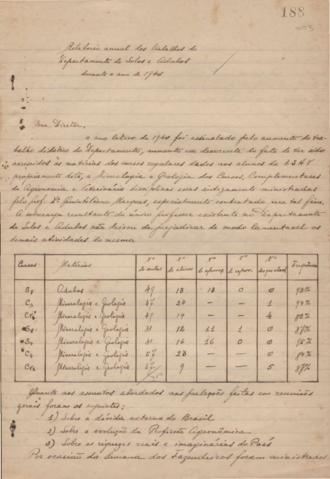 188
Relatorio annual dos trabalhos do
Departamento de Solos e Adubos
durante o anno de 1940
Snr. Director,
o anno lectivo de 1940 foi assinalado pelo augmento de tra-
balho didatico do Departamento, augmento em do facto de ter sido
ás materias dos cursos regulares dados aos alunos da E.S.A.V.
propriamente dita, a Mineralogia e Geologia dos Cursos Complementares
de Agronomia e Veterinaria, disciplinas essas ministradas
pelo prof. Dr. Marques, especialmente contractado para tal fim.
A do unico professor existente no Departamento
de Solos e Adubos não deixou de prejudicar de modo lamentavel os
demais atividades do mesmo
Cursos Materias Nº de aulas Nº de alunos Nº de aprov. Nº de reprov. Nº Frequência
Adubos 49 18 18 0 0
Mineralogia e Geologia 47 20 — 1
Mineralogia e Geologia 49 19 — 4
Mineralogia e Geologia 31 12 11 1 0
Mineralogia e Geologia 31 16 16 0 0
Mineralogia e Geologia 23 — 0
Mineralogia e Geologia 9 — 5
Quanto aos assuntos abordados nas preleções feitas em reuniões
gerais foram os seguintes:
1) Sobre a divida externa do Brasil
2) Sobre a evolução da Profissão Agronomica
3) Sobre as riquezas reais e imaginarias do Paiz
Por ocasião da Semana dos Fazendeiros foram ministradas